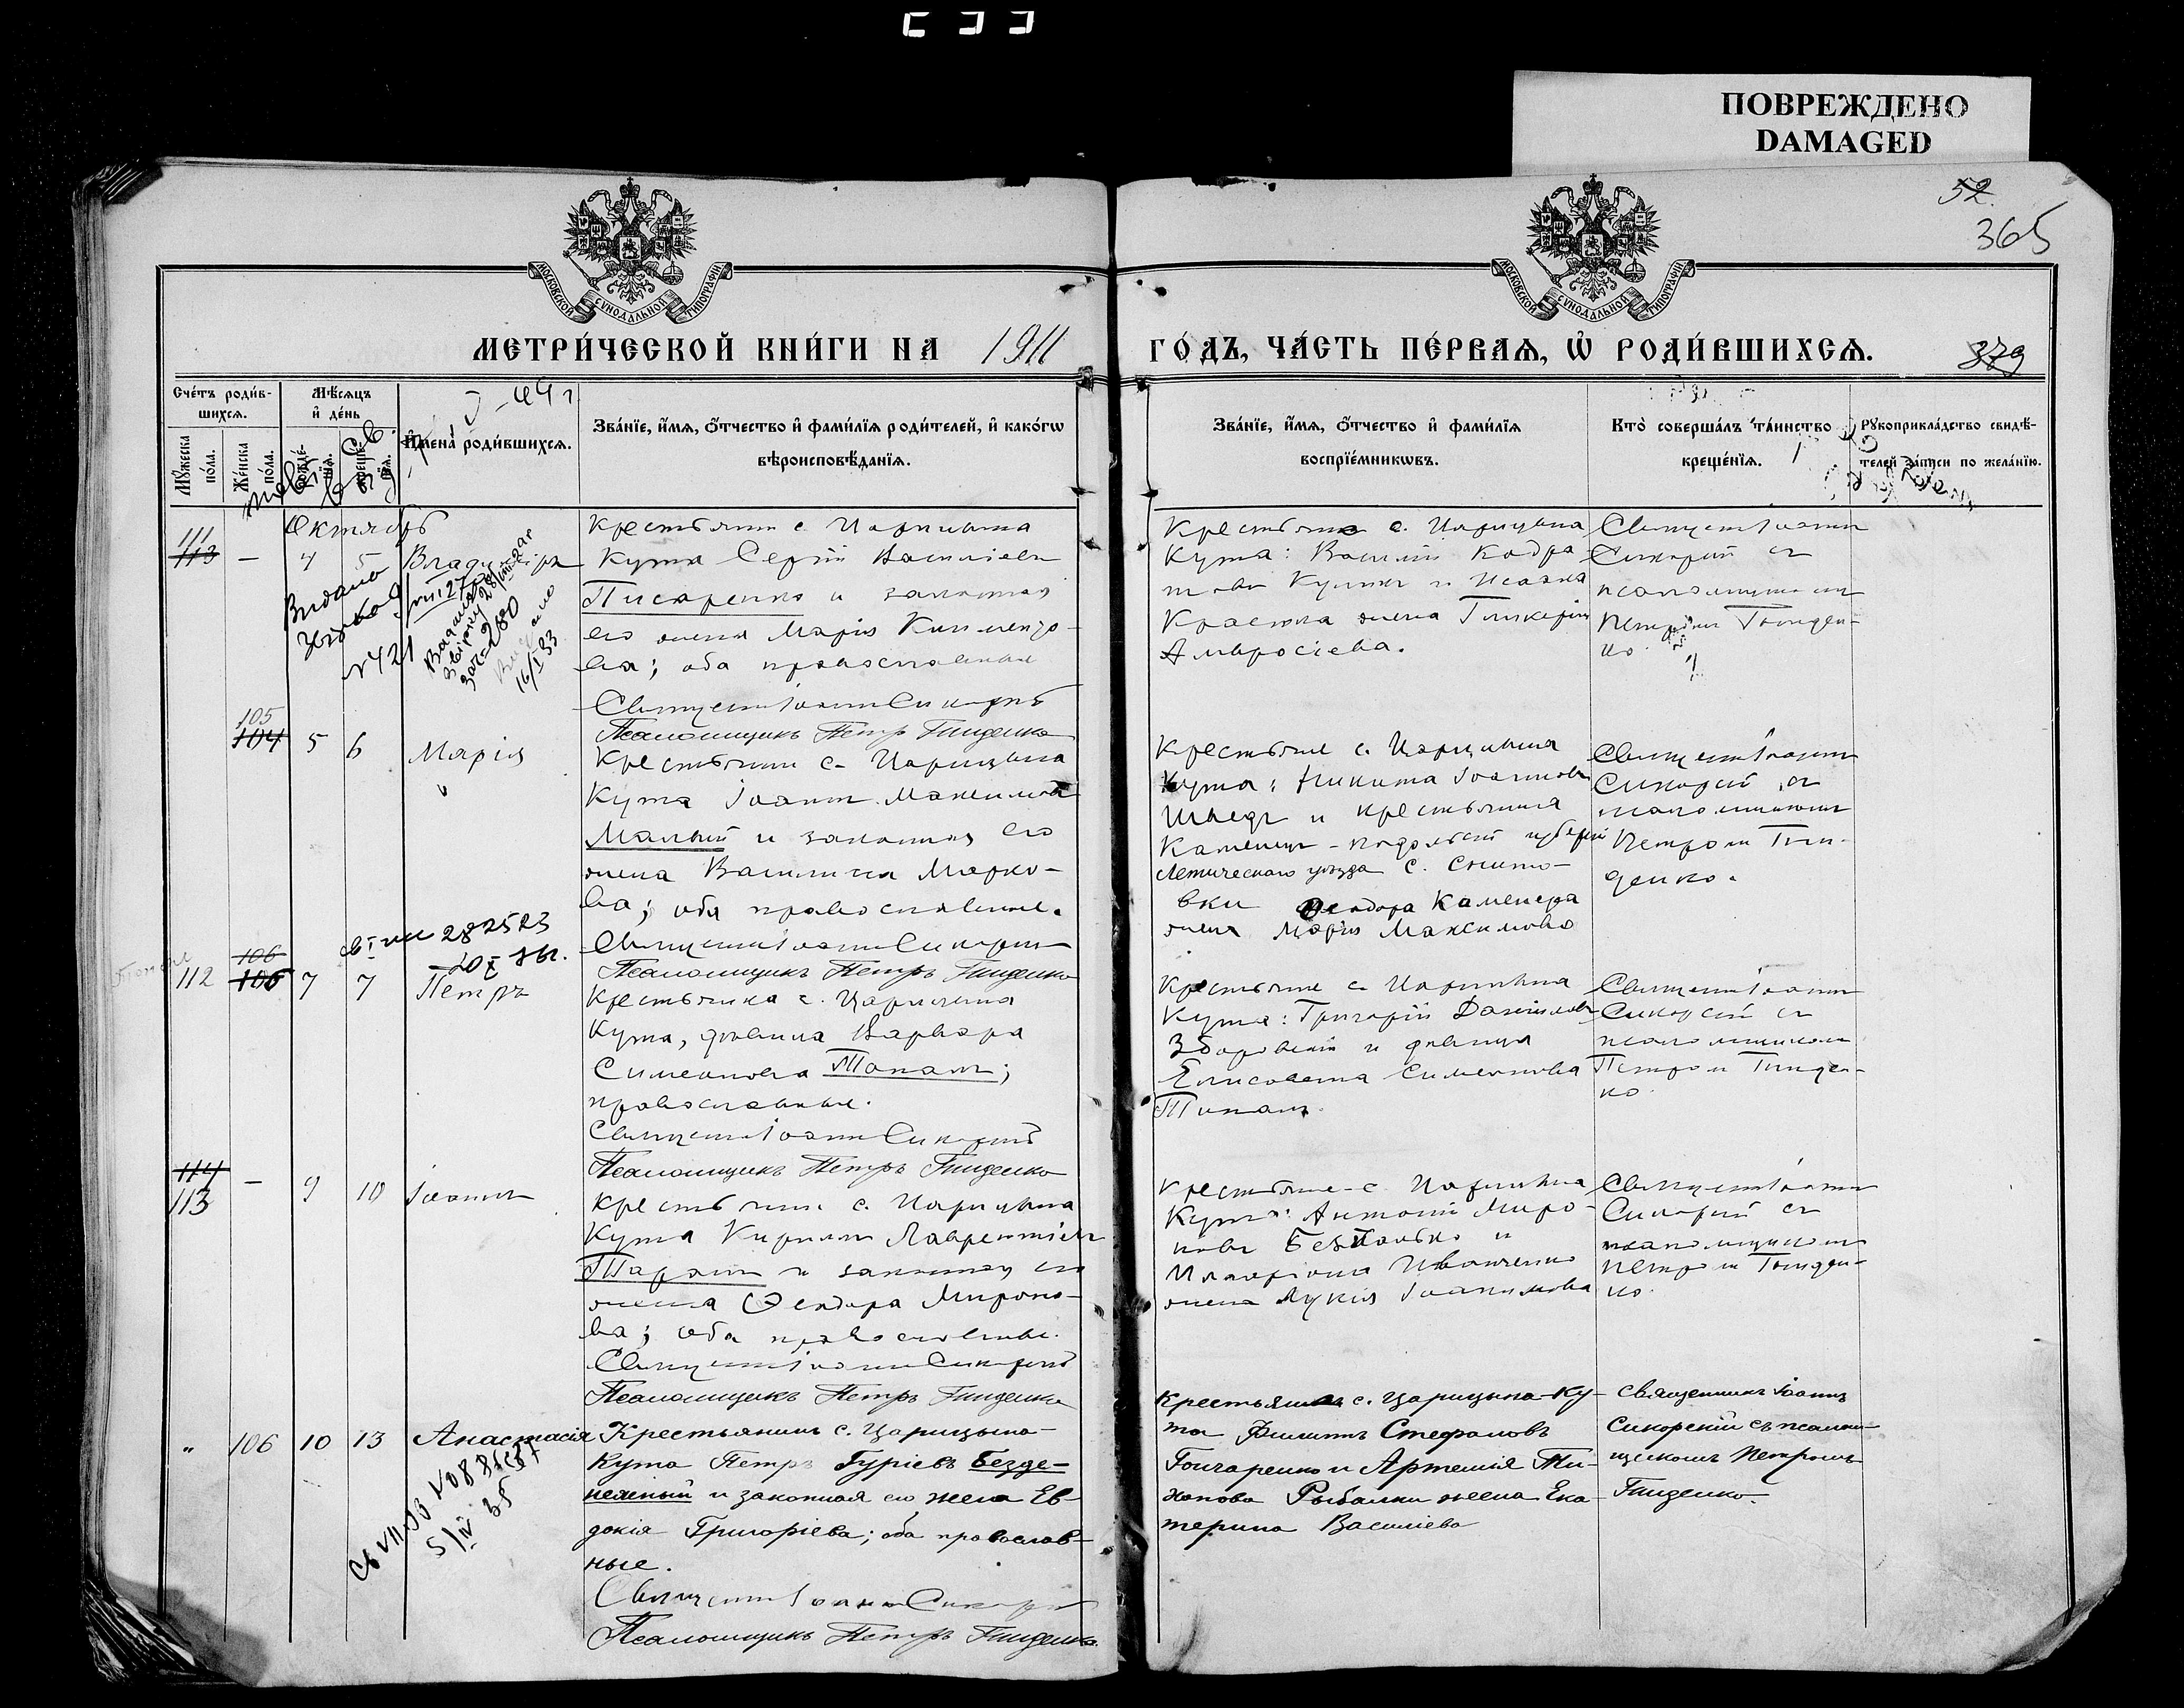 ПОВРЕЖДЕНО
DAMAGED
52.
365
МОСКОВСКОЙ СѴНОДАЛЬНОЙ ТИПОГРАФІИ
МОСКОВСКОЙ СѴНОДАЛЬНОЙ ТИПОГРАФІИ
МЕТРИ́ЧЕСКОЙ КНИ́ГИ НА 1911 ГО́ДЪ, ЧА́СТЬ ПЕ́РВАѦ, Ѡ҆ РОДИ́ВШИХСѦ.
379
Сче́тъ роди́в-
шихсѧ.
Мꙋ́жеска по́ла.
Же́нска по́ла.
Мѣ́сѧцъ
и҆ де́нь
рожде́-
нїѧ.
креще́-
нїѧ.
И҆мена̀ роди́вшихсѧ.
Зва́нїе, и҆́мѧ, ѻ҆́тчество и҆ фами́лїѧ роди́телей, и҆ како́гѡ
вѣроисповѣ́данїѧ.
Зва́нїе, и҆́мѧ, ѻ҆́тчество и҆ фами́лїѧ
воспрїе́мникѡвъ.
Кто̀ соверша́лъ та́инство
креще́нїѧ.
Рꙋкоприкла́дство свидѣ́-
телей за́писи по жела́нїю.
Октябрь
111
113 — 4 5 Владиміръ
Крестьянинъ с. Царицына
Кута Сергій Василіевъ
Писаренко и законная
его жена Марія Клименто-
ва; оба православные
Священникъ Іоаннъ Сикорскій
Псаломщикъ Петръ Гниденко
Крестьяне с. Царицына
Кута: Василій
и Исаака
жена Гликерія
Амвросіева.
Священникъ Іоаннъ
Сикорскій съ
псаломщикомъ
Петромъ Гниден-
ко.
Видано
№421
16/I 33
105
104 5 6 Марія
Крестьянинъ с. Царицына
Кута Іоаннъ Максимовъ
Малый и законная его
жена Василиса Марко-
ва; оба православные.
Священникъ Іоаннъ Сикорскій
Псаломщикъ Петръ Гниденко
Крестьяне с. Царицына
Кута: Никита Іоанновъ
Шведъ и крестьянина
Каменецъ-Подольской губерніи
Летичевскаго уѣзда с. Снито-
вки Ѳеодора Каменера
жена Марія Максимова
Священникъ Іоаннъ
Сикорскій съ
псаломщикомъ
Петромъ Гни-
денко.
106
112 106 7 7 Петръ
Крестьянка с. Царицына
Кута, дѣвица Варвара
Симеонова Топалъ;
православная.
Священникъ Іоаннъ Сикорскій
Псаломщикъ Петръ Гниденко
Крестьяне с. Царицына
Кута: Григорій Даніиловъ
Зборовскій и дѣвица
Елисавета Симеонова
Топалъ.
Священникъ Іоаннъ
Сикорскій съ
псаломщикомъ
Петромъ Гниден-
ко.
114
113 — 9 10 Іоаннъ
Крестьянинъ с. Царицына
Кута Кириллъ Лаврентіевъ
Таранъ и законная его
жена Ѳеодора Мироно-
ва; оба православные.
Священникъ Іоаннъ Сикорскій
Псаломщикъ Петръ Гниденко
Крестьяне с. Царицына
Кута: Антоній Миро-
новъ и
Иларіона Иванченко
жена Лукія Іоакимова
Священникъ Іоаннъ
Сикорскій съ
псаломщикомъ
Петромъ Гниден-
ко.
„ 106 10 13 Анастасія
Крестьянинъ с. Царицына-
Кута Петръ Гуріевъ Безде-
нежный и законная его жена Ев-
докія Григоріева; оба православ-
ные.
Священникъ Іоаннъ Сикорскій
Псаломщикъ Петръ Гниденко.
Крестьяне с. Царицына-Ку-
та Филиппъ Стефановъ
Гончаренко и Артемія Ти-
хонова Рыбалки жена Ека-
терина Василіева
Священникъ Іоаннъ
Сикорскій съ псалом-
щикомъ Петромъ
Гниденко.